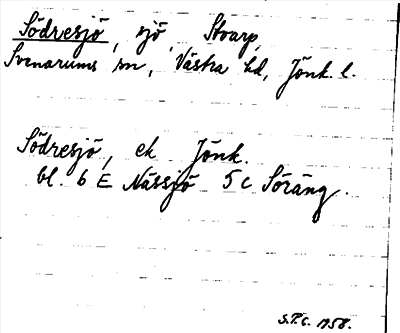 Södresjö, sjö, Stvarp,
Svenarums sn, Västra hd, Jönk. l.
Södresjö, ek Jönk.
bl. 6 E Nässjö 5 c Söräng.
S.P.G. 1958.